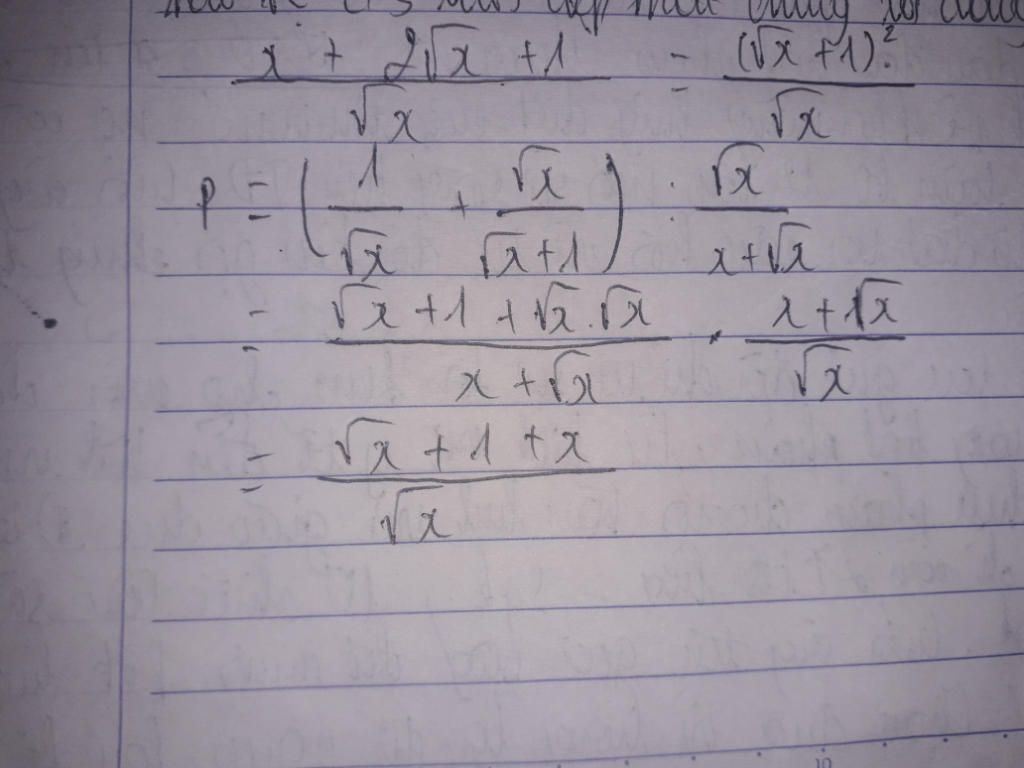 x + 2√x + 1 / √x = (√x + 1)² / √x
P = (1/√x + √x/(√x+1)) : √x/(x+√x)
= (√x + 1 + √x.√x)/(x + √x) . (x + √x)/√x
= (√x + 1 + x)/√x